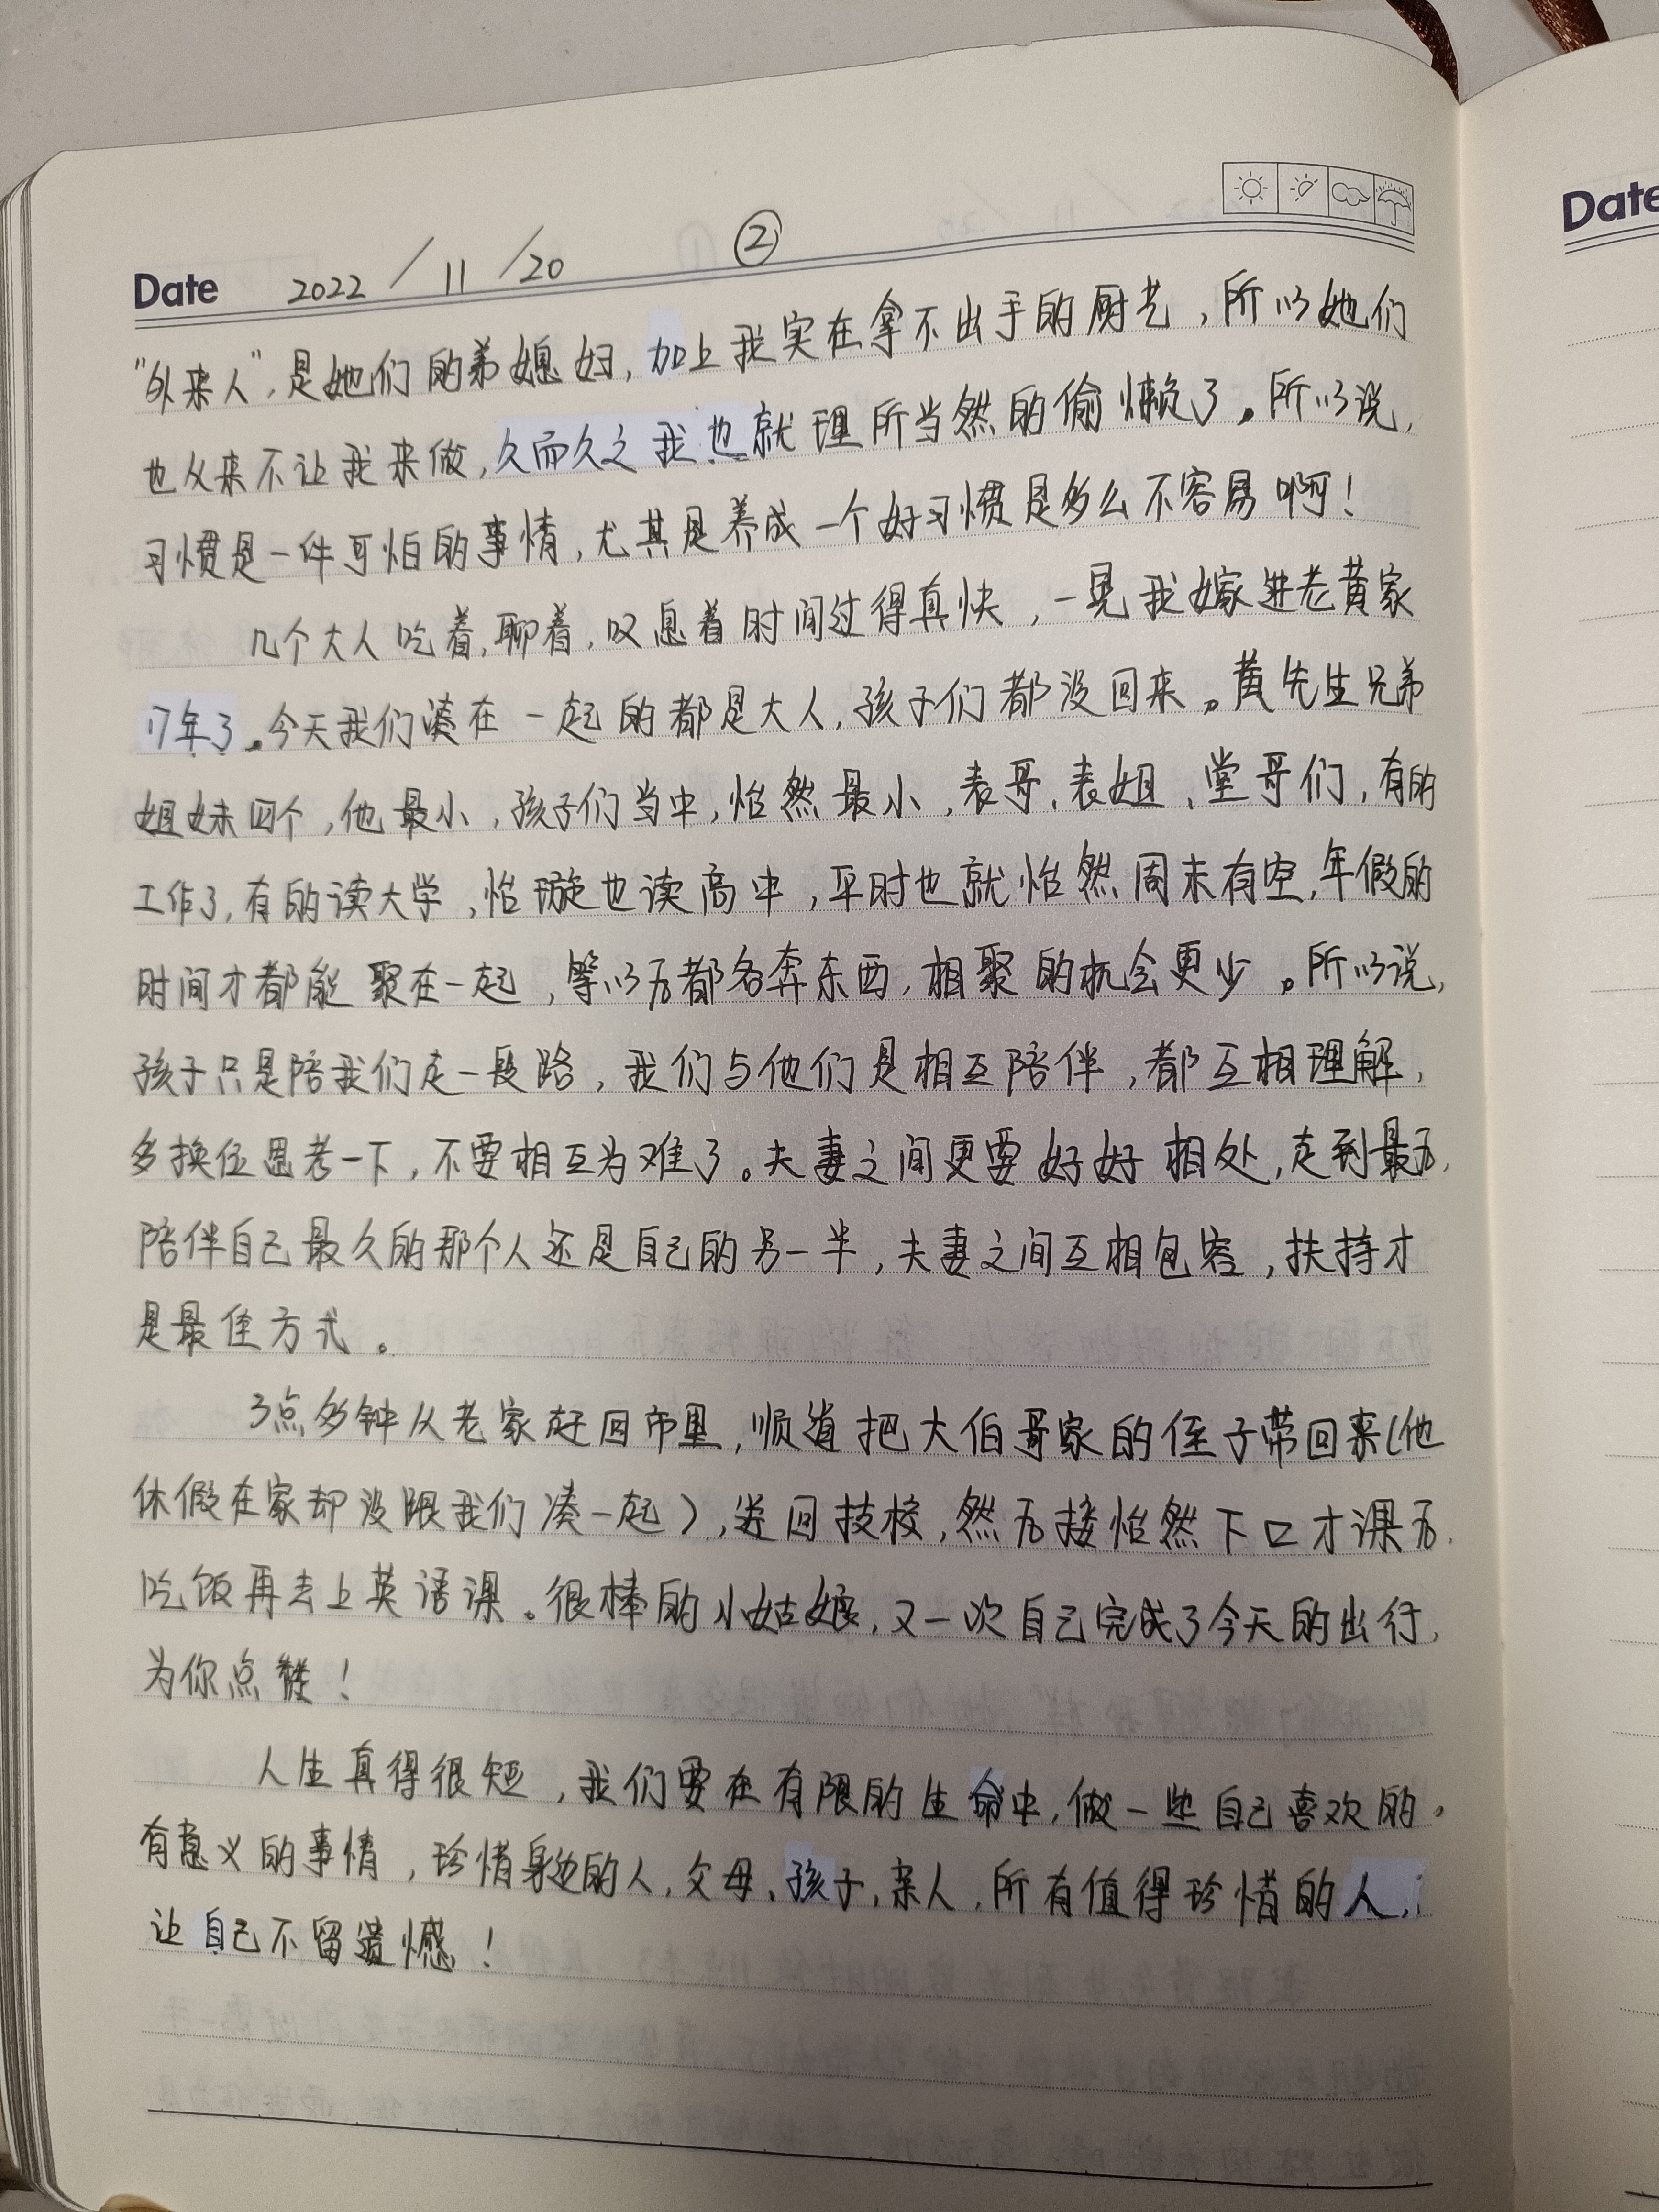 Date 2022/11/20 ②
Date
“外来人”，是她们的弟媳妇，加上我实在拿不出手的厨艺，所以她们
也从来不让我来做，久而久之我也就理所当然的偷懒了。所以说，
习惯是一件可怕的事情，尤其是养成一个好习惯是多么不容易啊！
几个大人吃着，聊着，叹息着时间过得真快，一晃我嫁进老黄家
17年了。今天我们凑在一起的都是大人，孩子们都没回来。黄先生兄弟
姐妹四个，他最小，孩子们当中，怡然最小，表哥、表姐、堂哥们，有的
工作了，有的读大学，怡璇也读高中，平时也就怡然周末有空，年假的
时间才都能聚在一起，等以后都各奔东西，相聚的机会更少。所以说，
孩子只是陪我们走一段路，我们与他们是相互陪伴，都互相理解，
多换位思考一下，不要相互为难了。夫妻之间更要好好相处，走到最后，
陪伴自己最久的那个人还是自己的另一半，夫妻之间互相包容，扶持才
是最佳方式。
3点多钟从老家赶回市里，顺道把大伯哥家的侄子带回来（他
休假在家却没跟我们凑一起），送回技校，然后接怡然下口才课后，
吃饭再去上英语课。很棒的小姑娘，又一次自己完成了今天的出行，
为你点赞！
人生真得很短，我们要在有限的生命中，做一些自己喜欢的，
有意义的事情，珍惜身边的人，父母、孩子，亲人，所有值得珍惜的人，
让自己不留遗憾！